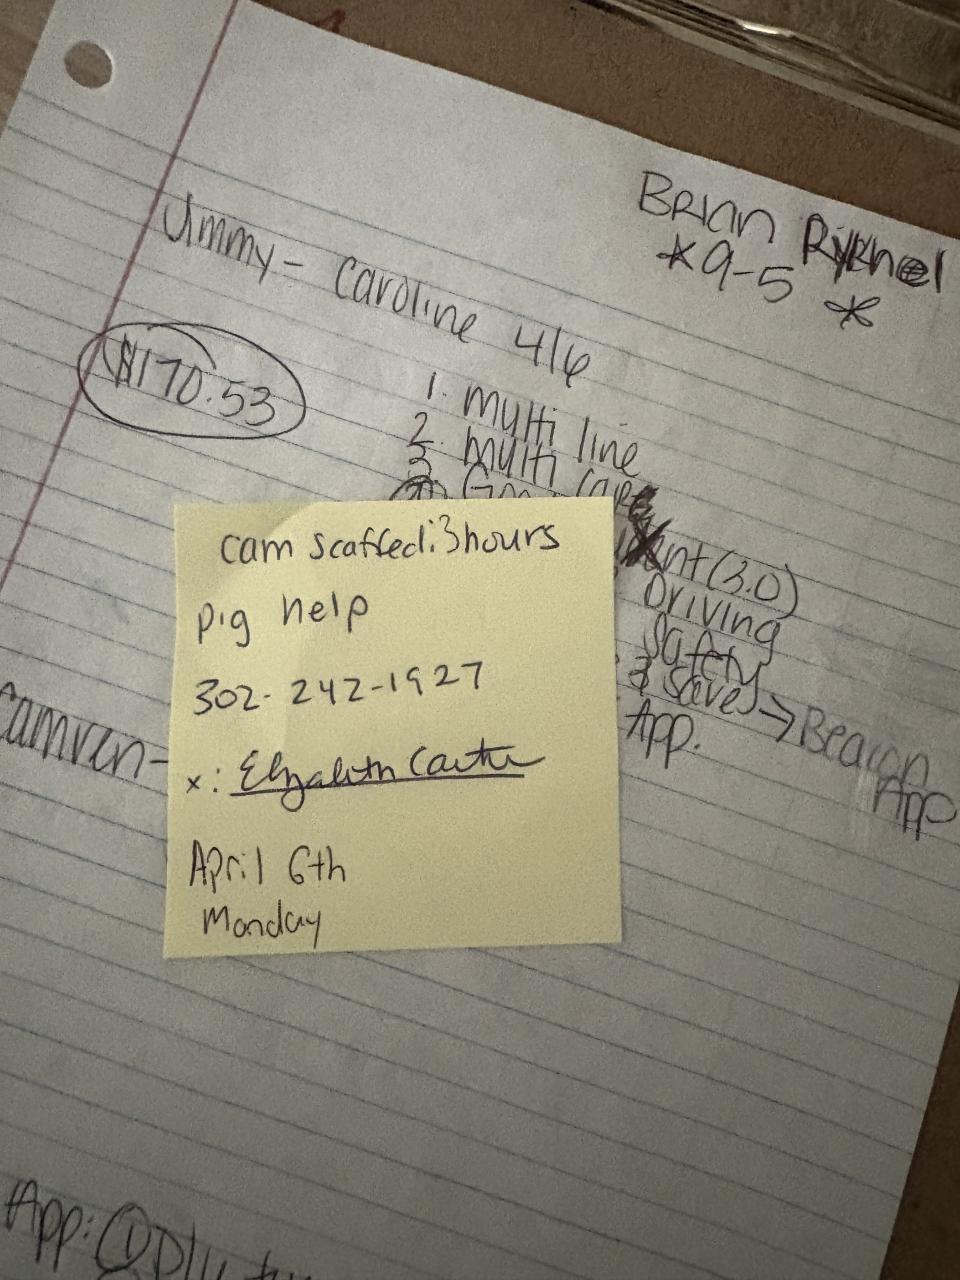 Brian Rykhel
*9-5 *
Jimmy - Caroline 4/6
$170.53
1. Multi line
2. Multi
3
cam scaffed: 3 hours
pig help
302-242-1927
x: Elizabeth Carter
April 6th
Monday
(3.0)
Driving
Safety
& Save → Beacon
App. App
Camren-
App: ①